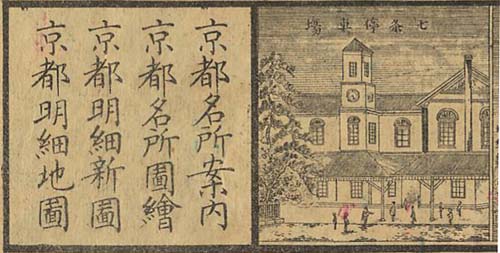 七条停車場
京都名所案内
京都名所圖繪
京都明細新圖
京都明細地圖